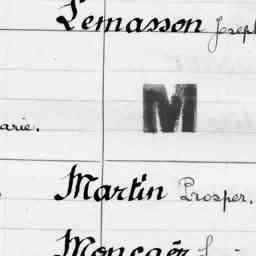 Lemasson Joseph
M
arie.
Martin Prosper.
Moncaër